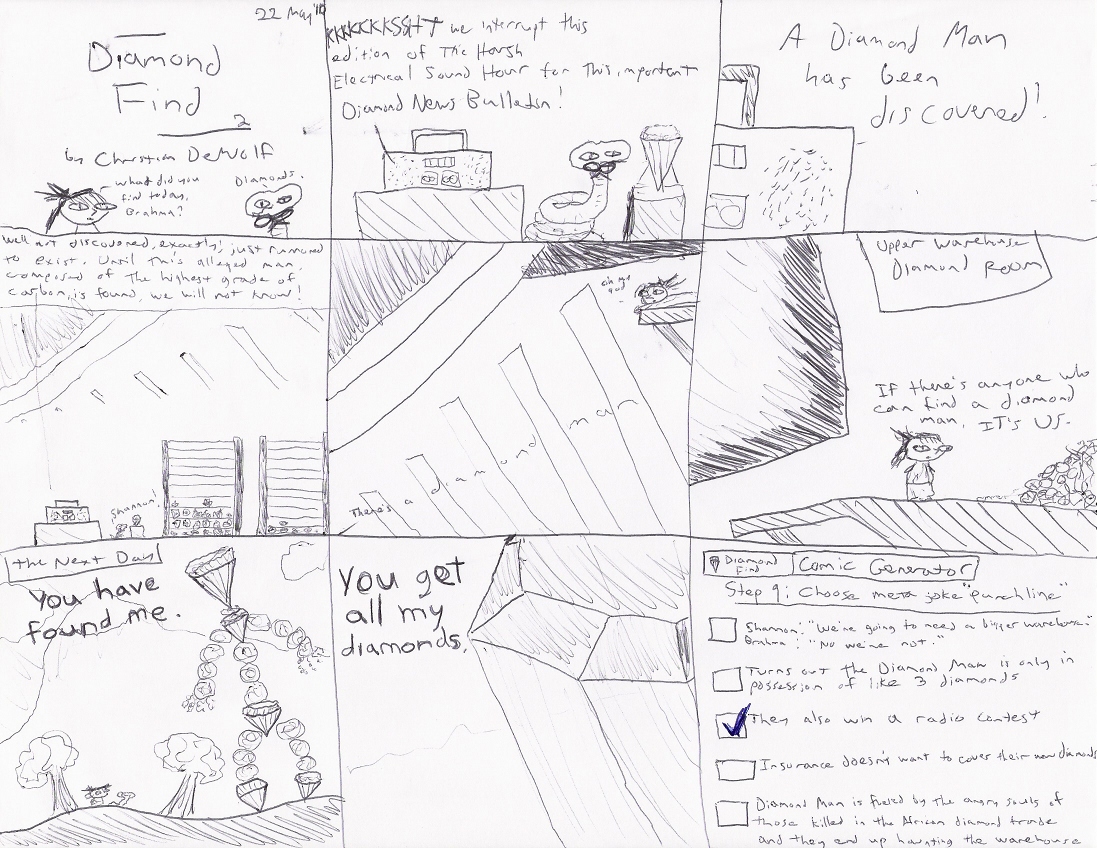 22 May '11
Diamond
Find
2
by Christian DeWolf
what did you
find today,
Brahma?
Diamonds.
KKKKCKKSSHT we interrupt this
edition of The Harsh
Electrical Sound Hour for this important
Diamond News Bulletin!
A Diamond Man
has been
discovered!
Well not discovered, exactly! just rumored
to exist. Until this alleged man,
composed of the highest grade of
carbon, is found, we will not know!
Shannon!
There's a diamond man
oh my
god
Upper Warehouse
Diamond Room
If there's anyone who
can find a diamond
man, IT'S US.
the Next Day
You have
found me.
You get
all my
diamonds.
Diamond
Find
Comic Generator
Step 9: Choose meta joke "punchline"
Shannon: "We're going to need a bigger warehouse."
Brahma: "No we're not."
Turns out the Diamond Man is only in
possession of like 3 diamonds
They also win a radio contest
Insurance doesn't want to cover their new diamonds
Diamond Man is fueled by the angry souls of
those killed in the African diamond trade
and they end up haunting the warehouse